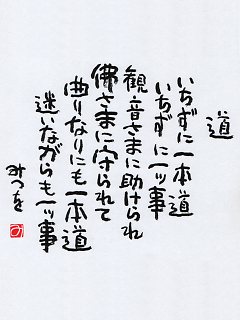 道
いちずに一本道
いちずに一ッ事
観音さまに助けられ
佛さまに守られて
曲りなりにも一本道
迷いながらも一ッ事
みつを
み